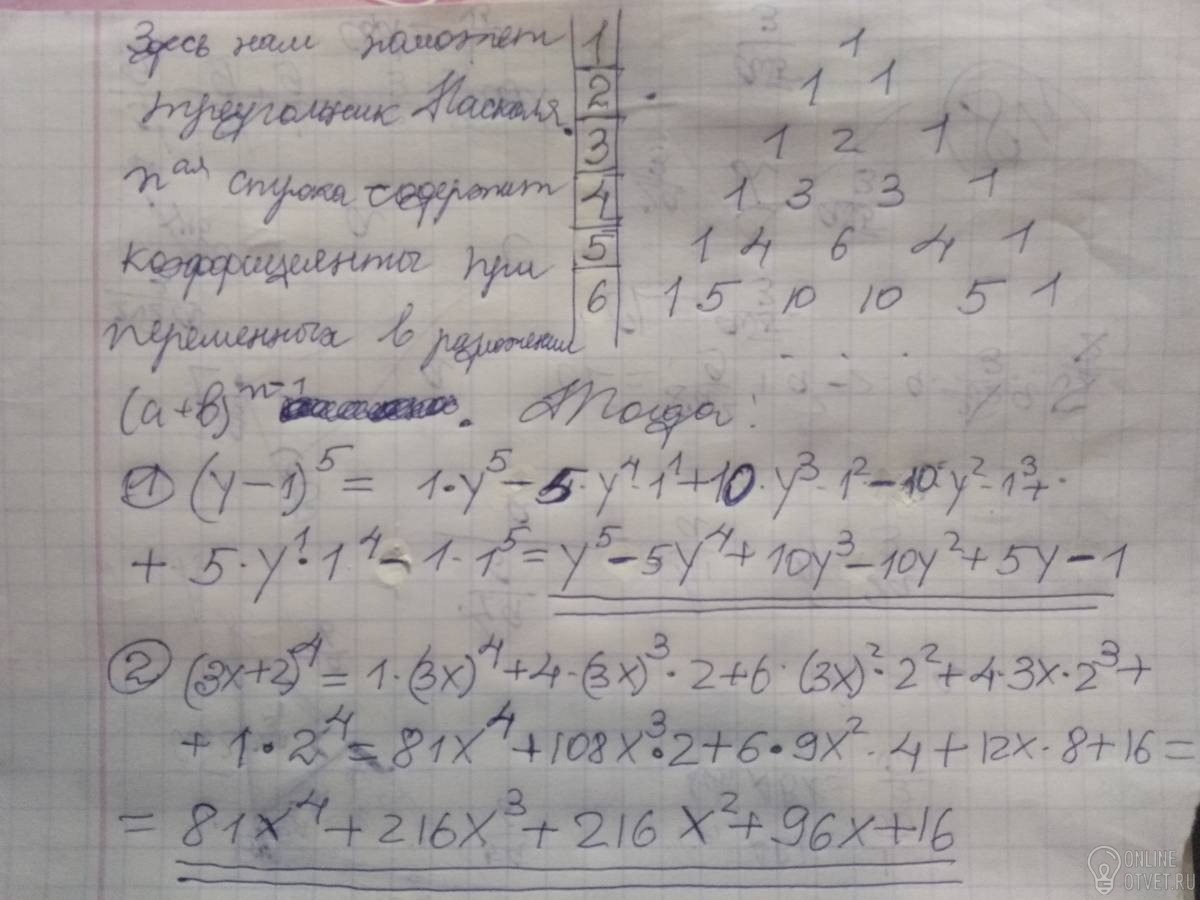 Здесь нам поможет | 1 | 1
треугольник Паскаля. | 2 | 1 1
3 | 1 2 1
nая строка содержит | 4 | 1 3 3 1
коэффициенты при | 5 | 1 4 6 4 1
6 | 1 5 10 10 5 1
переменных в разложении
(a+b)^n-1. Тогда:
① (y-1)^5 = 1·y^5 - 5·y^4·1^1 + 10·y^3·1^2 - 10·y^2·1^3 +
+ 5·y^1·1^4 - 1·1^5 = y^5 - 5y^4 + 10y^3 - 10y^2 + 5y - 1
② (3x+2)^4 = 1·(3x)^4 + 4·(3x)^3·2 + 6·(3x)^2·2^2 + 4·3x·2^3 +
+ 1·2^4 = 81x^4 + 108x^3·2 + 6·9x^2·4 + 12x·8 + 16 =
= 81x^4 + 216x^3 + 216x^2 + 96x + 16
ONLINE
OTVET.RU